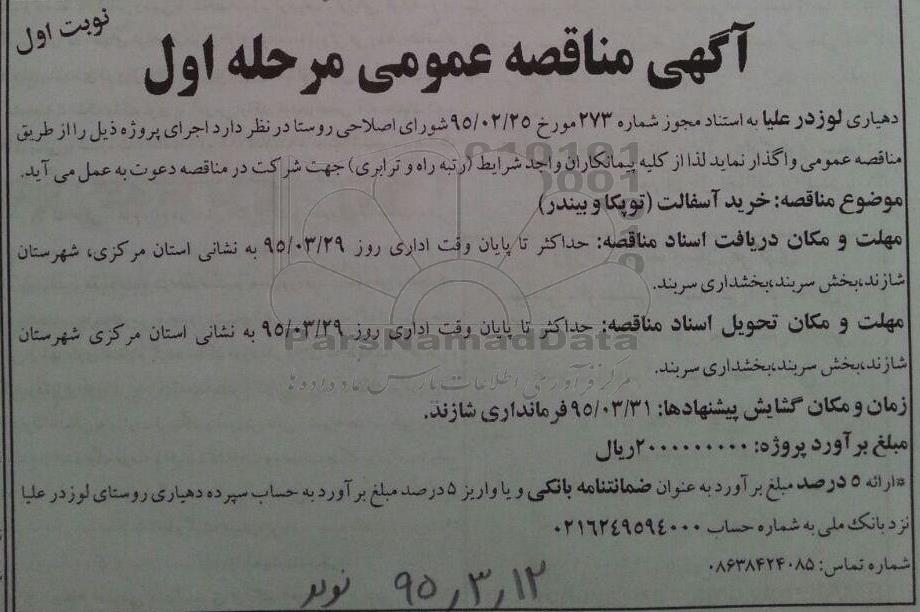 نوبت اول
آگهی مناقصه عمومی مرحله اول
دهیاری لوزدر علیا به استناد مجوز شماره ۲۷۳ مورخ ۹۵/۰۲/۲۵ شورای اصلاحی روستا در نظر دارد اجرای پروژه ذیل را از طریق
مناقصه عمومی واگذار نماید لذا از کلیه پیمانکاران واجد شرایط (رتبه راه و ترابری) جهت شرکت در مناقصه دعوت به عمل می آید.
موضوع مناقصه: خرید آسفالت (توپکا و بیندر)
مهلت و مکان دریافت اسناد مناقصه: حداکثر تا پایان وقت اداری روز ۹۵/۰۳/۲۹ به نشانی استان مرکزی، شهرستان
شازند،بخش سربند،بخشداری سربند.
مهلت و مکان تحویل اسناد مناقصه: حداکثر تا پایان وقت اداری روز ۹۵/۰۳/۲۹ به نشانی استان مرکزی شهرستان
شازند،بخش سربند،بخشداری سربند.
ParsNamadData
مرکز فرآوری اطلاعات پارس نماد داده ها
زمان و مکان گشایش پیشنهادها: ۹۵/۰۳/۳۱ فرمانداری شازند.
مبلغ برآورد پروژه: ۲۰۰۰۰۰۰۰۰۰ ریال
*ارائه ۵ درصد مبلغ برآورد به عنوان ضمانتنامه بانکی و یا واریز ۵ درصد مبلغ برآورد به حساب سپرده دهیاری روستای لوزدر علیا
نزد بانک ملی به شماره حساب ۰۲۱۶۲۴۹۵۹۴۰۰۰
شماره تماس: ۰۸۶۳۸۴۲۴۰۸۵
۹۵٫۳٫۱۲ نوید